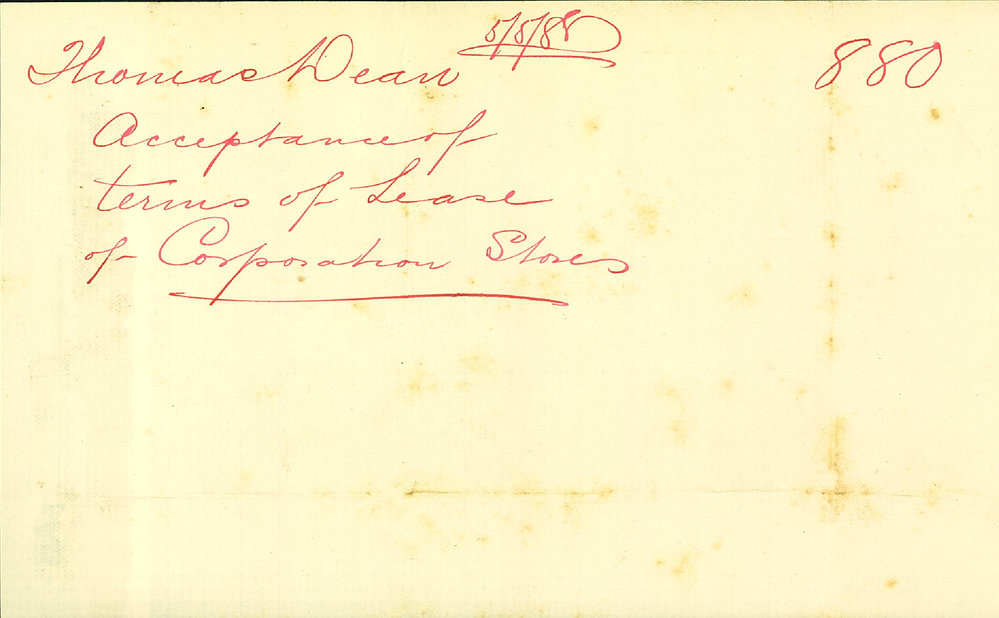 5/5/88
Thomas Dean
880
Acceptance of
terms of Lease
of Corporation Stores